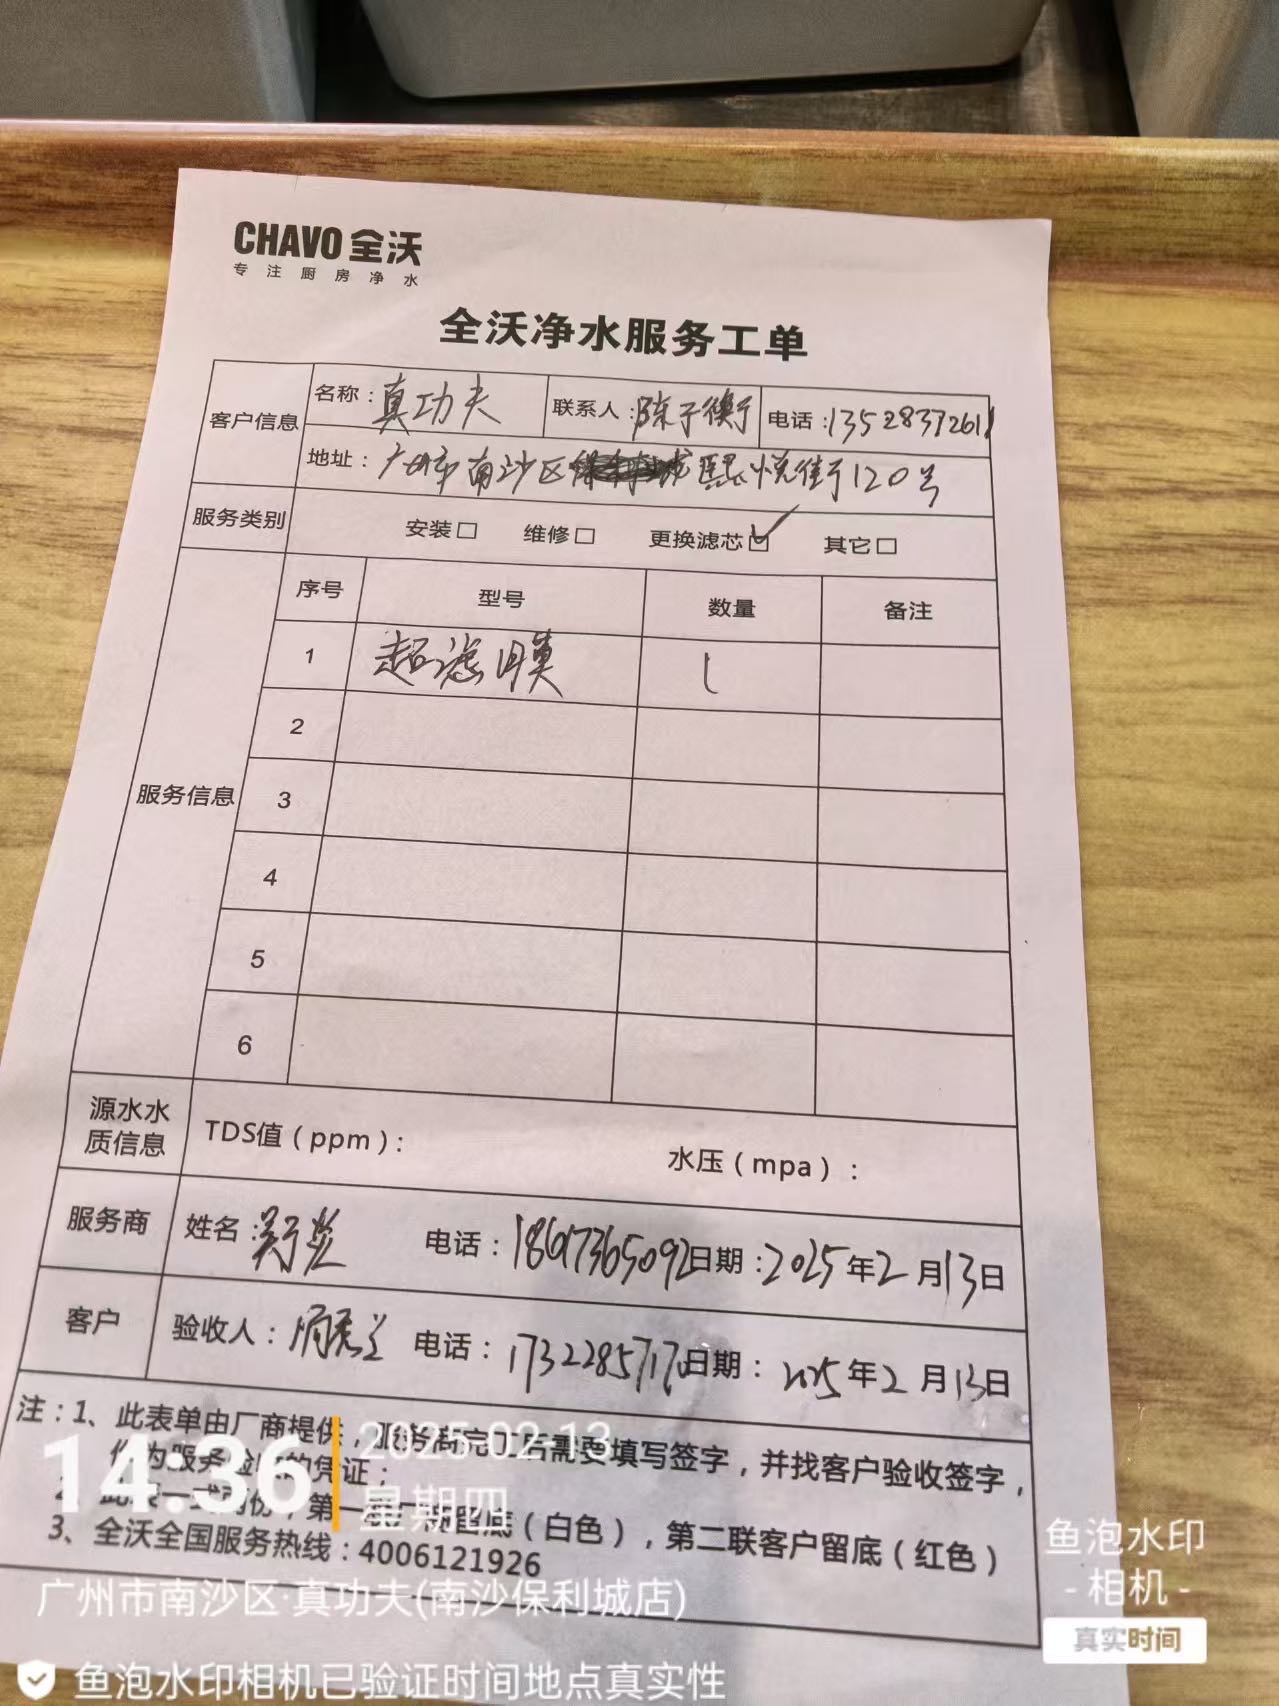 CHAVO 全沃
专注厨房净水
全沃净水服务工单
客户信息 名称：真功夫 联系人：陈子衡 电话：13528372618
地址：广州市南沙区熙悦街120号
服务类别 安装□ 维修□ 更换滤芯☑ 其它□
服务信息 序号 型号 数量 备注
1 超滤膜 1
2
3
4
5
6
源水水质信息 TDS值（ppm）： 水压（mpa）：
服务商 姓名： 电话：18617365092 日期：2025年2月13日
客户 验收人： 电话：17322857170 日期：2025年2月13日
注：1、此表单由厂商提供，服务商完工后需要填写签字，并找客户验收签字，
作为服务验收的凭证；
2、此表一式两份，第一联厂商留底（白色），第二联客户留底（红色）
3、全沃全国服务热线：4006121926
14:36 2025.02.13
星期四
广州市南沙区·真功夫(南沙保利城店)
鱼泡水印相机已验证时间地点真实性
鱼泡水印
- 相机 -
真实时间